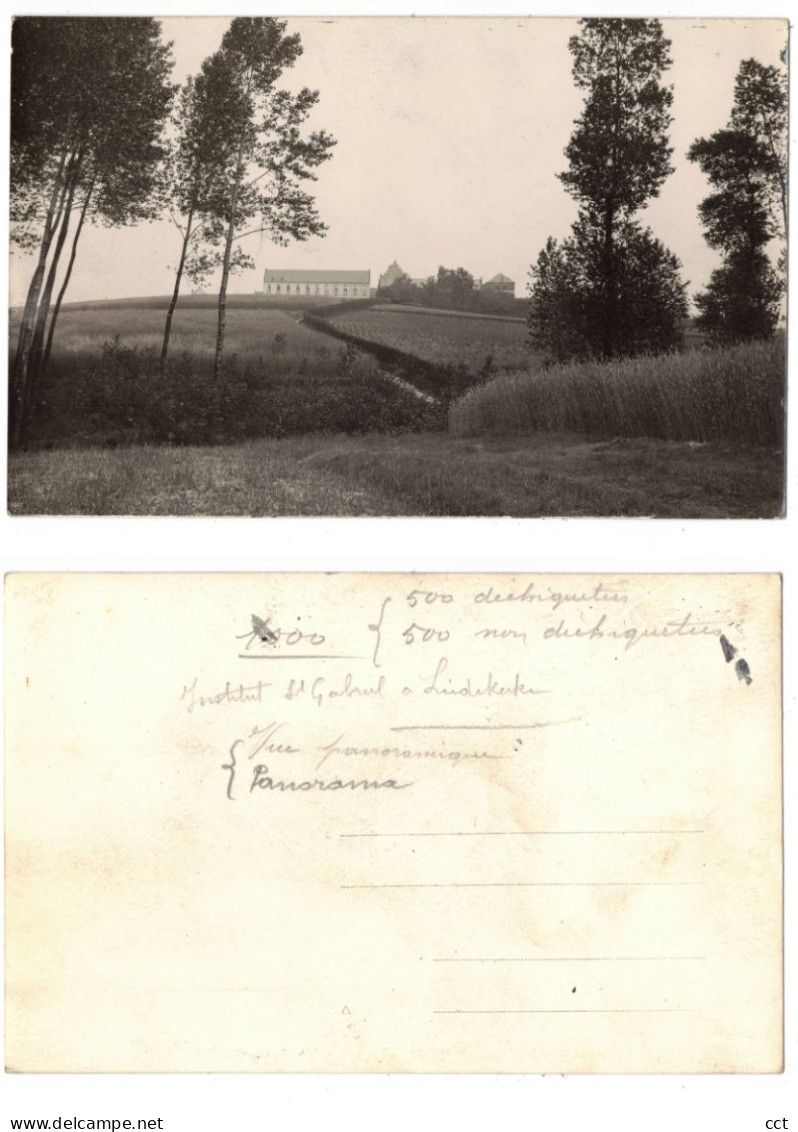 1000 { 500 déchiquetées
500 non déchiquetées
Institut St Gabriel à Liedekerke
{ Vue panoramique
Panorama
www.delcampe.net
cct